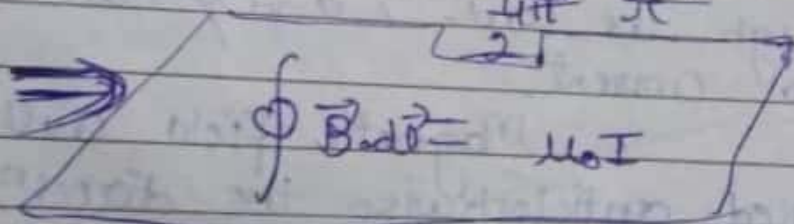 4π π
2
⇒ ∮ B⃗.dl⃗ = μ₀I